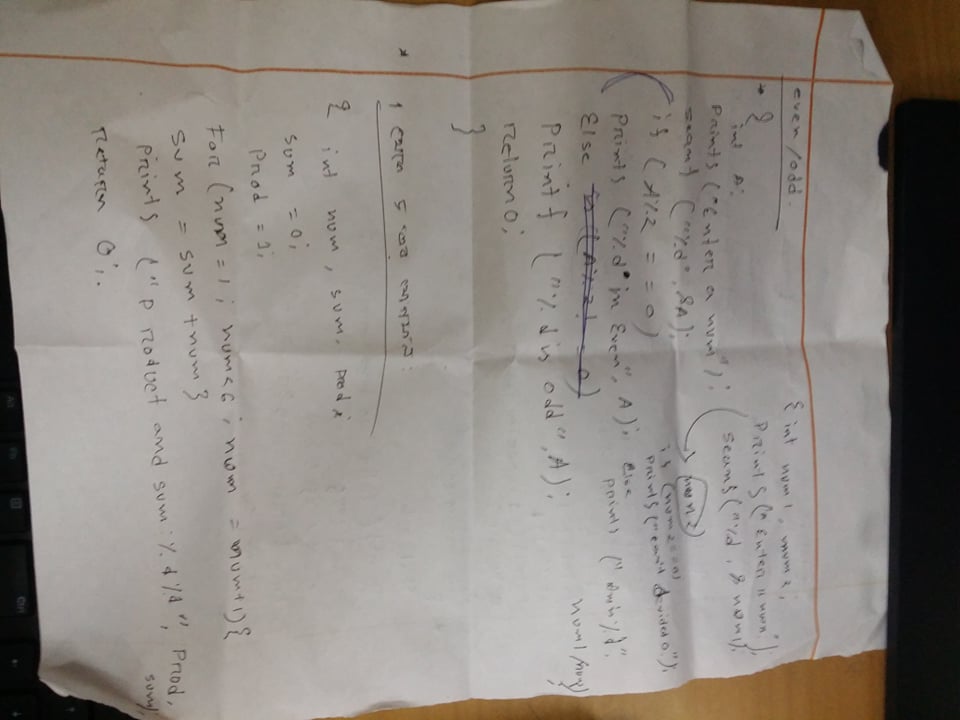 even/odd.
* {
int A;
Prints ("Enter a num");
scanf ("%d", &A);
if (A%2 == 0)
Prints ("%d in Even", A);
Else if (A%2! = 0)
Printf ("%d is odd", A);
Return 0;
}
{ int num1, num2;
Prints ("Enter num"),
scans ("%d, & num1);
num2)
is (num2==0)
Prints ("can't devided 0");
Else
prints ("%d".
num1/num2)
;
* 1 থেকে ৫ এর যোগফল:
{ int num, sum, prod;
sum = 0;
Prod = 1;
For (num = 1; num<6; num = num+1){
sum = sum + num}
Prints ("Product and sum: %d %d", Prod,
sum),
Return 0;.
Alt
Fn
Ctrl